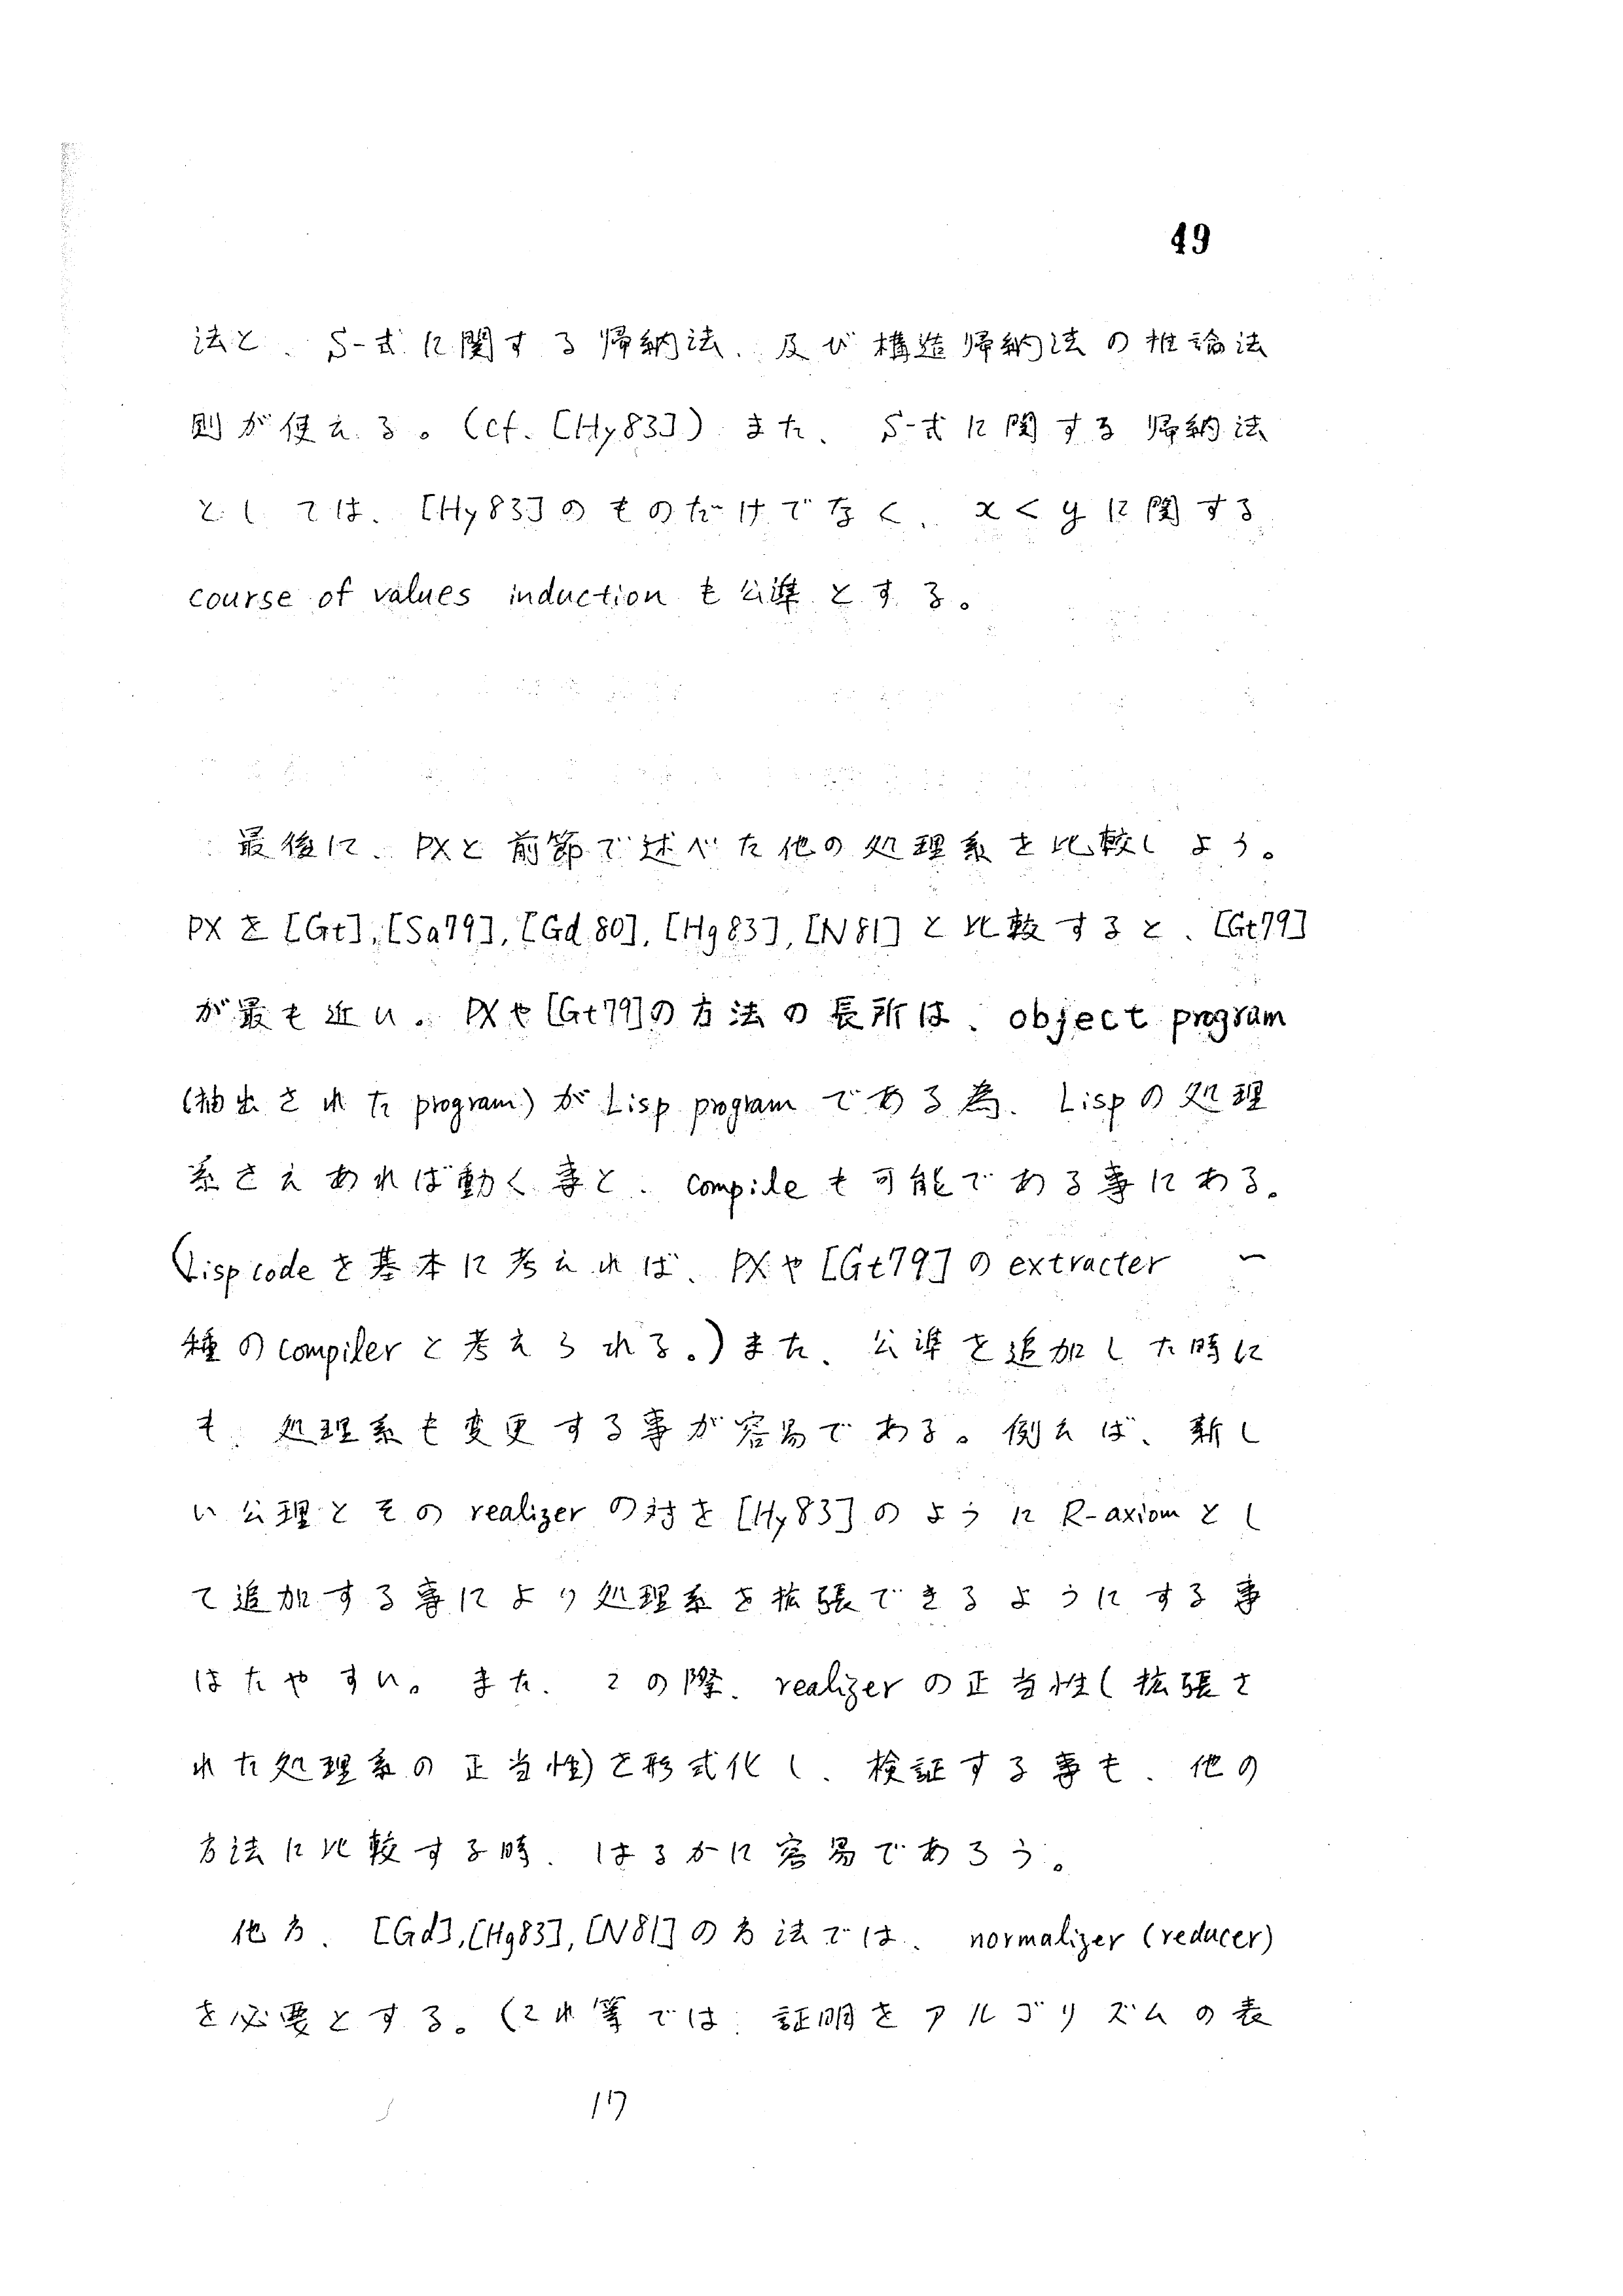 49
法と、S-式に関する帰納法、及び構造帰納法の推論法
則が使える。(cf. [Hy83]) また、S-式に関する帰納法
としては、[Hy83]のものだけでなく、x < y に関する
course of values induction も公準とする。
最後に、PXと前節で述べた他の処理系を比較しよう。
PXを[Gt],[Sa79],[Gd 80],[Hg83],[N81]と比較すると、[Gt79]
が最も近い。PXや[Gt79]の方法の長所は、object program
(抽出された program) が Lisp program である為、Lispの処理
系さえあれば動く事と、compile も可能である事にある。
(Lisp code を基本に考えれば、PXや[Gt79]の extracter 一
種の compiler と考えられる。) また、公準を追加した時に
も、処理系も変更する事が容易である。例えば、新し
い公理とその realizer の対を[Hy83]のように R-axiom とし
て追加する事により処理系を拡張できるようにする事
はたやすい。また、この際、realizer の正当性(拡張さ
れた処理系の正当性)を形式化し、検証する事も、他の
方法に比較する時、はるかに容易であろう。
他方、[Gd],[Hg83],[N81]の方法では、normalizer (reducer)
を必要とする。(これ等では、証明をアルゴリズムの表
17